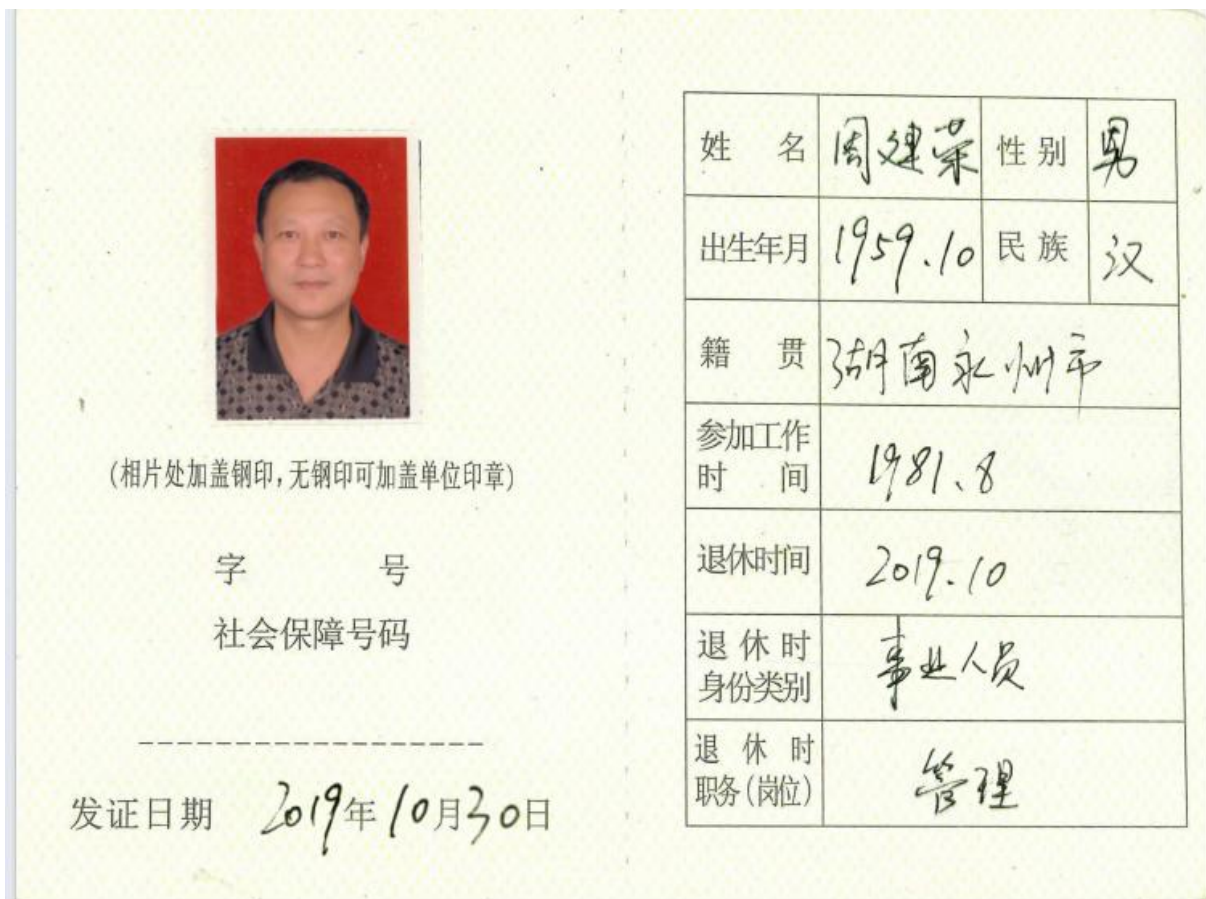 (相片处加盖钢印,无钢印可加盖单位印章)
字 号
社会保障号码
发证日期 2019年10月30日
姓 名 周建荣 性别 男
出生年月 1959.10 民族 汉
籍 贯 湖南永州市
参加工作
时 间 1981.8
退休时间 2019.10
退 休 时
身份类别 事业人员
退 休 时
职务(岗位) 管理